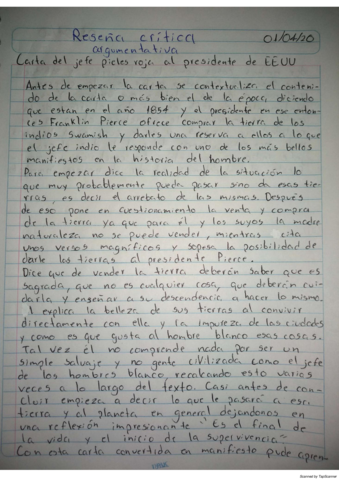 Reseña crítica 01/04/20
argumentativa
Carta del jefe pieles roja al presidente de EEUU
Antes de empezar la carta se contextualiza el conteni-
do de la carta o más bien el de la época, diciendo
que estan en el año 1854 y el presidente en ese enton-
ces Franklin Pierce ofrece comprar la tierra de los
indios Swamish y darles una reserva a ellos a lo que
el jefe indio le responde con uno de los más bellos
manifiestos en la historia del hombre.
Para empezar dice la realidad de la situación lo
que muy probablemente pueda pasar sino da esas tie-
rras, es decir el arrebato de las mismas. Después
de eso pone en cuestionamiento la venta y compra
de la tierra ya que para él y los suyos la madre
naturaleza no se puede vender, mientras cita
unos versos magníficos y sopesa la posibilidad de
darle las tierras al presidente Pierce.
Dice que de vender la tierra deberán saber que es
sagrada, que no es cualquier cosa, que deberán cui-
darla y enseñar a su descendencia a hacer lo mismo.
explica la belleza de sus tierras al convivir
directamente con ella y la impureza de las ciudades
y como es que gusta al hombre blanco esas cosas.
Tal vez él no comprende nada por ser un
simple salvaje y no gente civilizada como el jefe
de los hombres blanco, recalcando esto varios
veces a lo largo del texto. Casi antes de con-
cluir empieza a decir lo que le pasará a esta
tierra y al planeta en general dejandonos en
una reflexión impresionante "Es el final de
la vida y el inicio de la supervivencia"
Con esta carta convertida en manifiesto pude apren-
Scanned by TapScanner